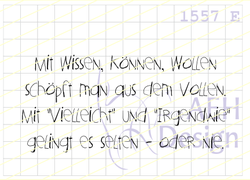 1557 E
Mit Wissen, Können, Wollen
schöpft man aus dem Vollen.
Mit "Vielleicht" und "Irgendwie"
gelingt es selten - oder nie.
AEH
Design